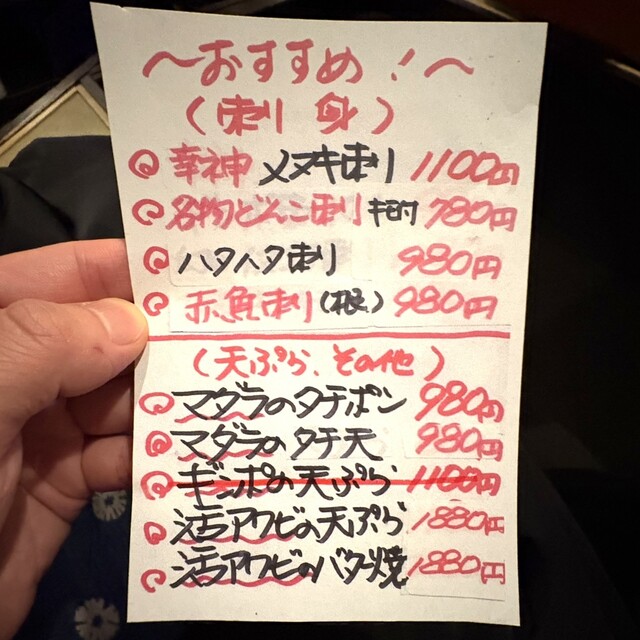 〜おすすめ！〜
（刺身）
幸神 メヌキ刺り 1100円
名物どんこ刺り 肝付 780円
ハタハタ刺り 980円
赤魚刺り（根） 980円
（天ぷら、その他）
マダラのタチポン 980円
マダラのタチ天 980円
ギンポの天ぷら 1100円
活アワビの天ぷら 1880円
活アワビのバター焼 1880円